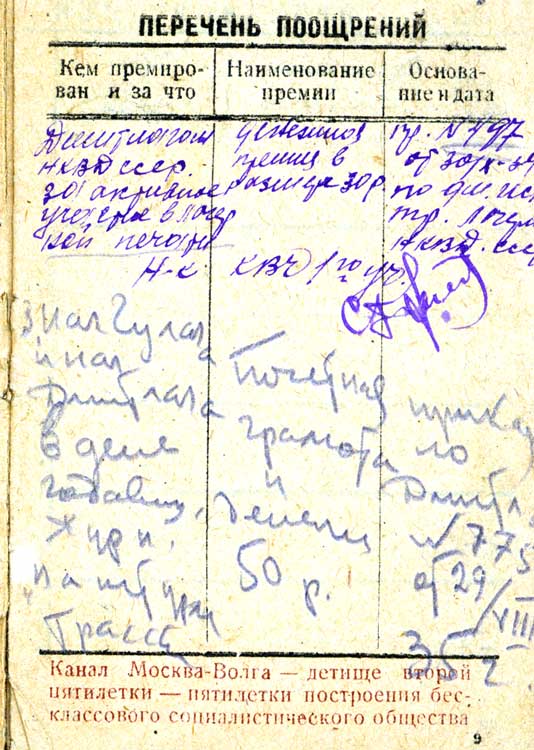 ПЕРЕЧЕНЬ ПООЩРЕНИЙ
Кем премиро-
ван и за что
Наименование
премии
Основа-
ние и дата
Дмитлагом
НКВД ссср.
за активное
участие в лагер
ной печати
денежная
премия в
размере 30 р.
пр. N 497
по
НКВД. ссср
Н-к КВЧ 1го уч.
нач Гулага
и нач
Дмитлага
в день
годовщ.
"На штурм
трассы
Почетная
грамота
и
деньги
50 р.
приказ
по
Дмитл
N 775
от 29/VIII
35 г.
Канал Москва-Волга — детище второй
пятилетки — пятилетки построения бес-
классового социалистического общества
9